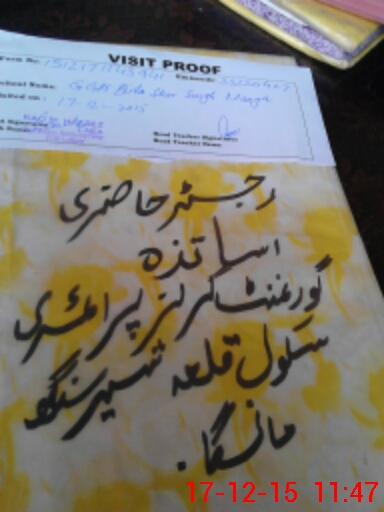 VISIT PROOF
Form No.
School Name: Qila Sher Singh Manga
Visited on: 17-12-2015
Head Teacher Signature
Head Teacher Name
رجسٹر حاضری
اساتذہ
گورنمنٹ گرلز پرائمری
سکول قلعہ شیر سنگھ
مانگا۔
17-12-15 11:47